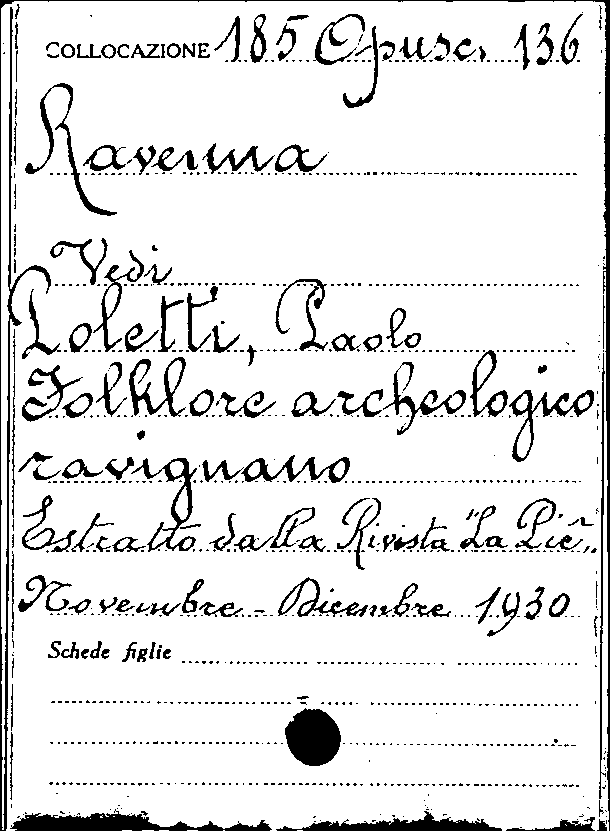 COLLOCAZIONE 185 Opusc. 136
Ravenna
Vedi
Poletti, Paolo
Folklore archeologico
ravignano
Estratto dalla Rivista "La Piè".
Novembre - Dicembre 1930
Schede figlie